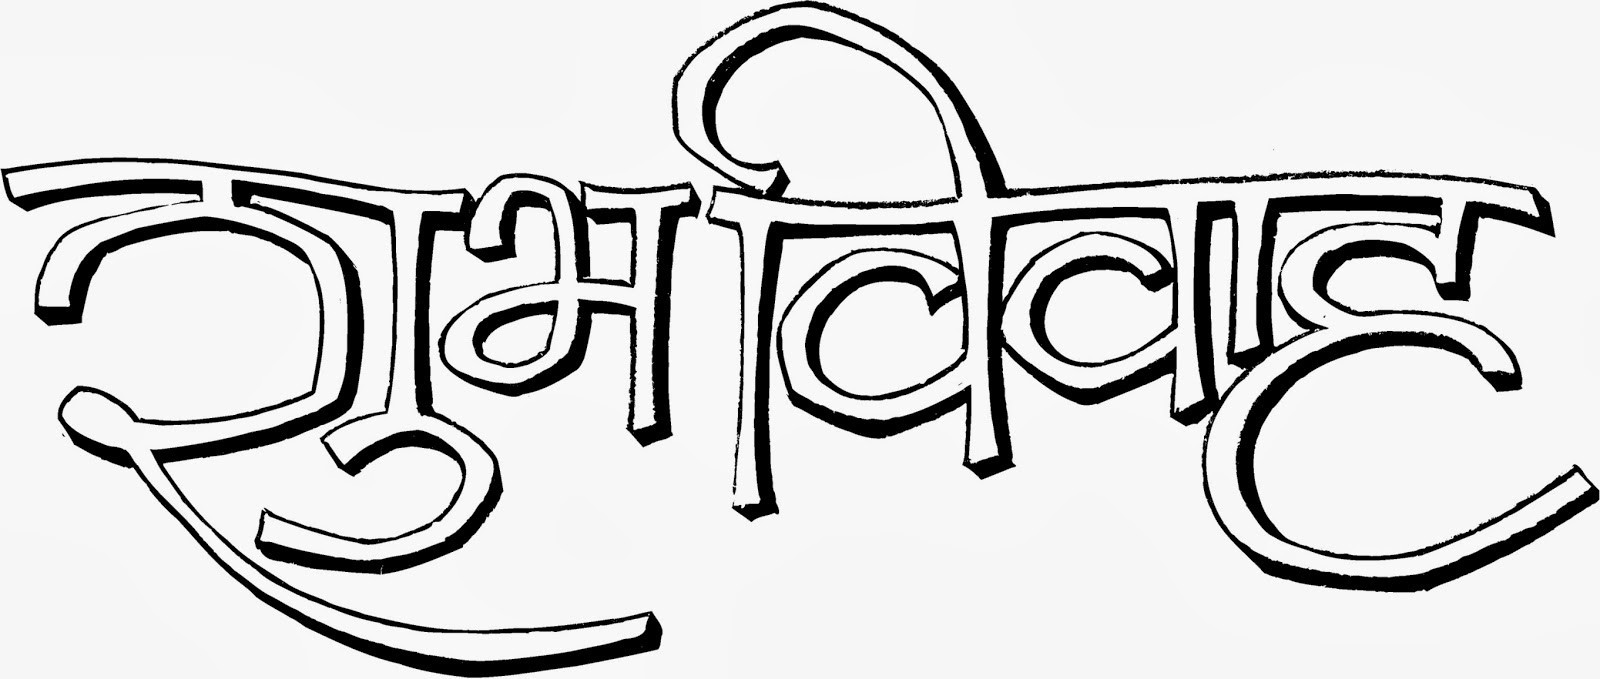 शुभ विवाह